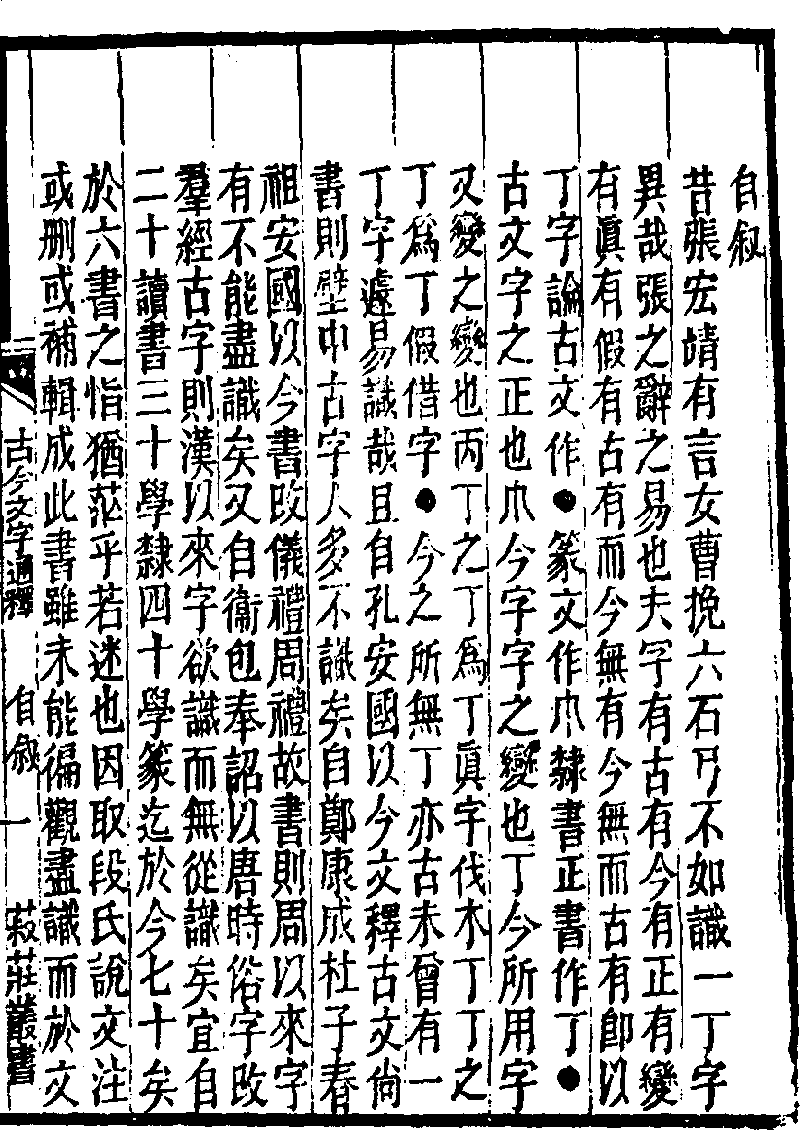 自叙
昔張宏靖有言女曹挽六石弓不如識一丁字
異哉張之辭之易也夫字有古有今有正有變
有眞有假有古有而今無有今無而古有卽以
丁字論古文作●篆文作𠆤隸書正書作丁●
古文字之正也𠆤今字字之變也丁今所用字
又變之變也丙丁之丁爲丁眞字伐木丁丁之
丁爲丁假借字●今之所無丁亦古未曾有一
丁字遽易識哉且自孔安國以今文釋古文尙
書則壁中古字人多不識矣自鄭康成杜子春
祖安國以今書改儀禮周禮故書則周以來字
有不能盡識矣又自衞包奉詔以唐時俗字改
羣經古字則漢以來字欲識而無從識矣宜自
二十讀書三十學隸四十學篆迄於今七十矣
於六書之恉猶茫乎若迷也因取段氏說文注
或刪或補輯成此書雖未能徧觀盡識而於文
古今文字通釋 自叙 一 菽莊叢書